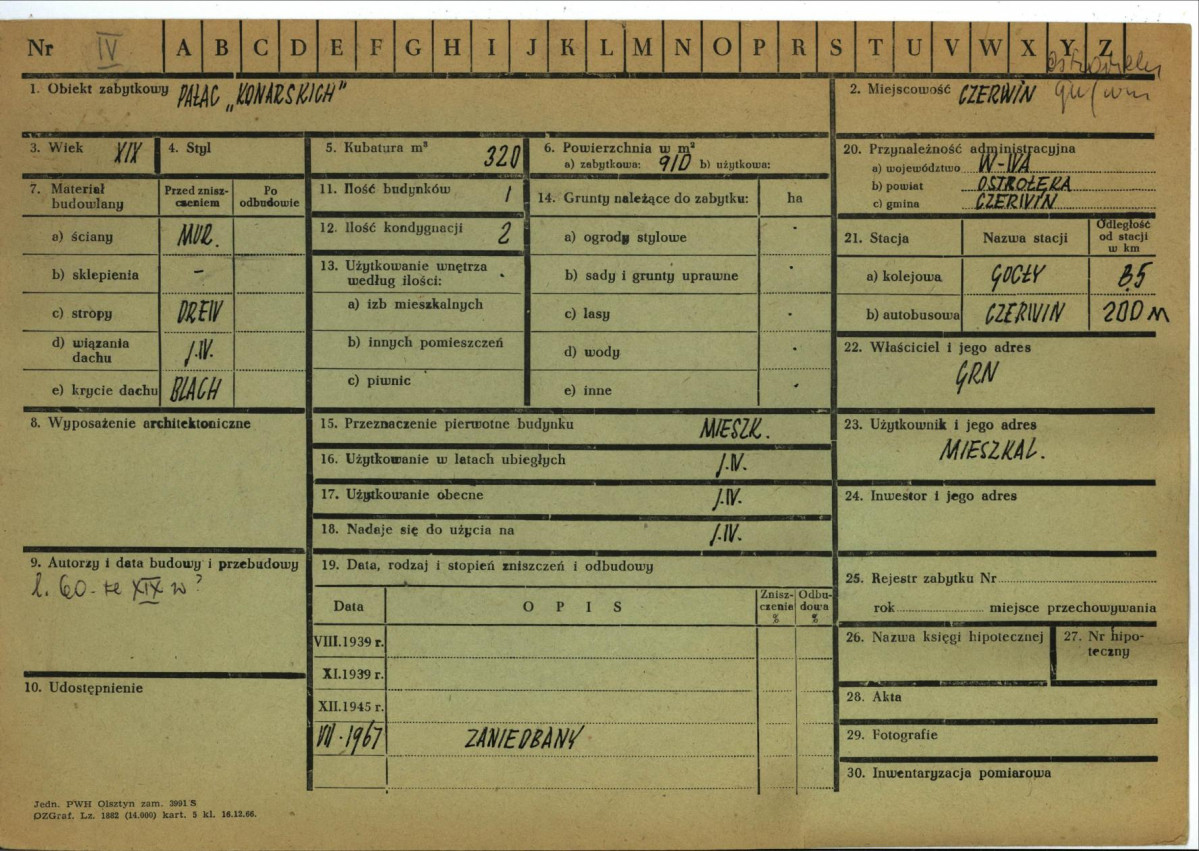 Nr IV A B C D E F G H I J K L M N O P R S T U V W X Y Z
1. Obiekt zabytkowy PAŁAC „KONARSKICH”
2. Miejscowość CZERWIN
3. Wiek XIX
4. Styl
5. Kubatura m³ 320
6. Powierzchnia w m²
a) zabytkowa: 910 b) użytkowa:
20. Przynależność administracyjna
a) województwo W-WA
b) powiat OSTROŁĘKA
c) gmina CZERWIN
7. Materiał budowlany
Przed znisz-
czeniem
Po
odbudowie
a) ściany MUR.
b) sklepienia –
c) stropy DREW
d) wiązania
dachu J.W.
e) krycie dachu BLACH
11. Ilość budynków 1
12. Ilość kondygnacji 2
13. Użytkowanie wnętrza
według ilości:
a) izb mieszkalnych
b) innych pomieszczeń
c) piwnic
14. Grunty należące do zabytku: ha
a) ogrody stylowe
b) sady i grunty uprawne
c) lasy
d) wody
e) inne
21. Stacja Nazwa stacji
Odległość
od stacji
w km
a) kolejowa GOCŁY
b) autobusowa CZERWIN 200 M
22. Właściciel i jego adres
GRN
8. Wyposażenie architektoniczne
15. Przeznaczenie pierwotne budynku MIESZK.
16. Użytkowanie w latach ubiegłych J.W.
17. Użytkowanie obecne J.W.
18. Nadaje się do użycia na J.W.
23. Użytkownik i jego adres
MIESZKAL.
24. Inwestor i jego adres
9. Autorzy i data budowy i przebudowy
l. 60-te XIX w?
10. Udostępnienie
19. Data, rodzaj i stopień zniszczeń i odbudowy
Data OPIS
Znisz-
czenia
%
Odbu-
dowa
%
VIII.1939 r.
XI.1939 r.
XII.1945 r.
VII.1967 ZANIEDBANY
25. Rejestr zabytku Nr
rok miejsce przechowywania
26. Nazwa księgi hipotecznej
27. Nr hipo-
teczny
28. Akta
29. Fotografie
30. Inwentaryzacja pomiarowa
Jedn. PWH Olsztyn zam. 3991 S
OZGraf. Lz. 1882 (14.000) kart. 5 kl. 16.12.66.